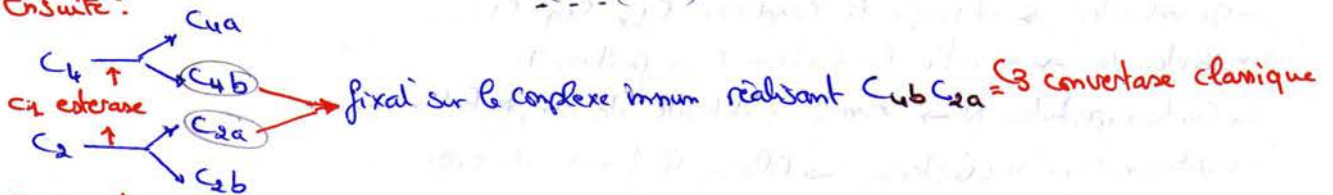 Ensuite :
C4a
C4 → C4b
C1 esterase
fixat° sur le complexe immun réalisant C4b C2a = C3 convertase classique
C2 → C2a
C2b